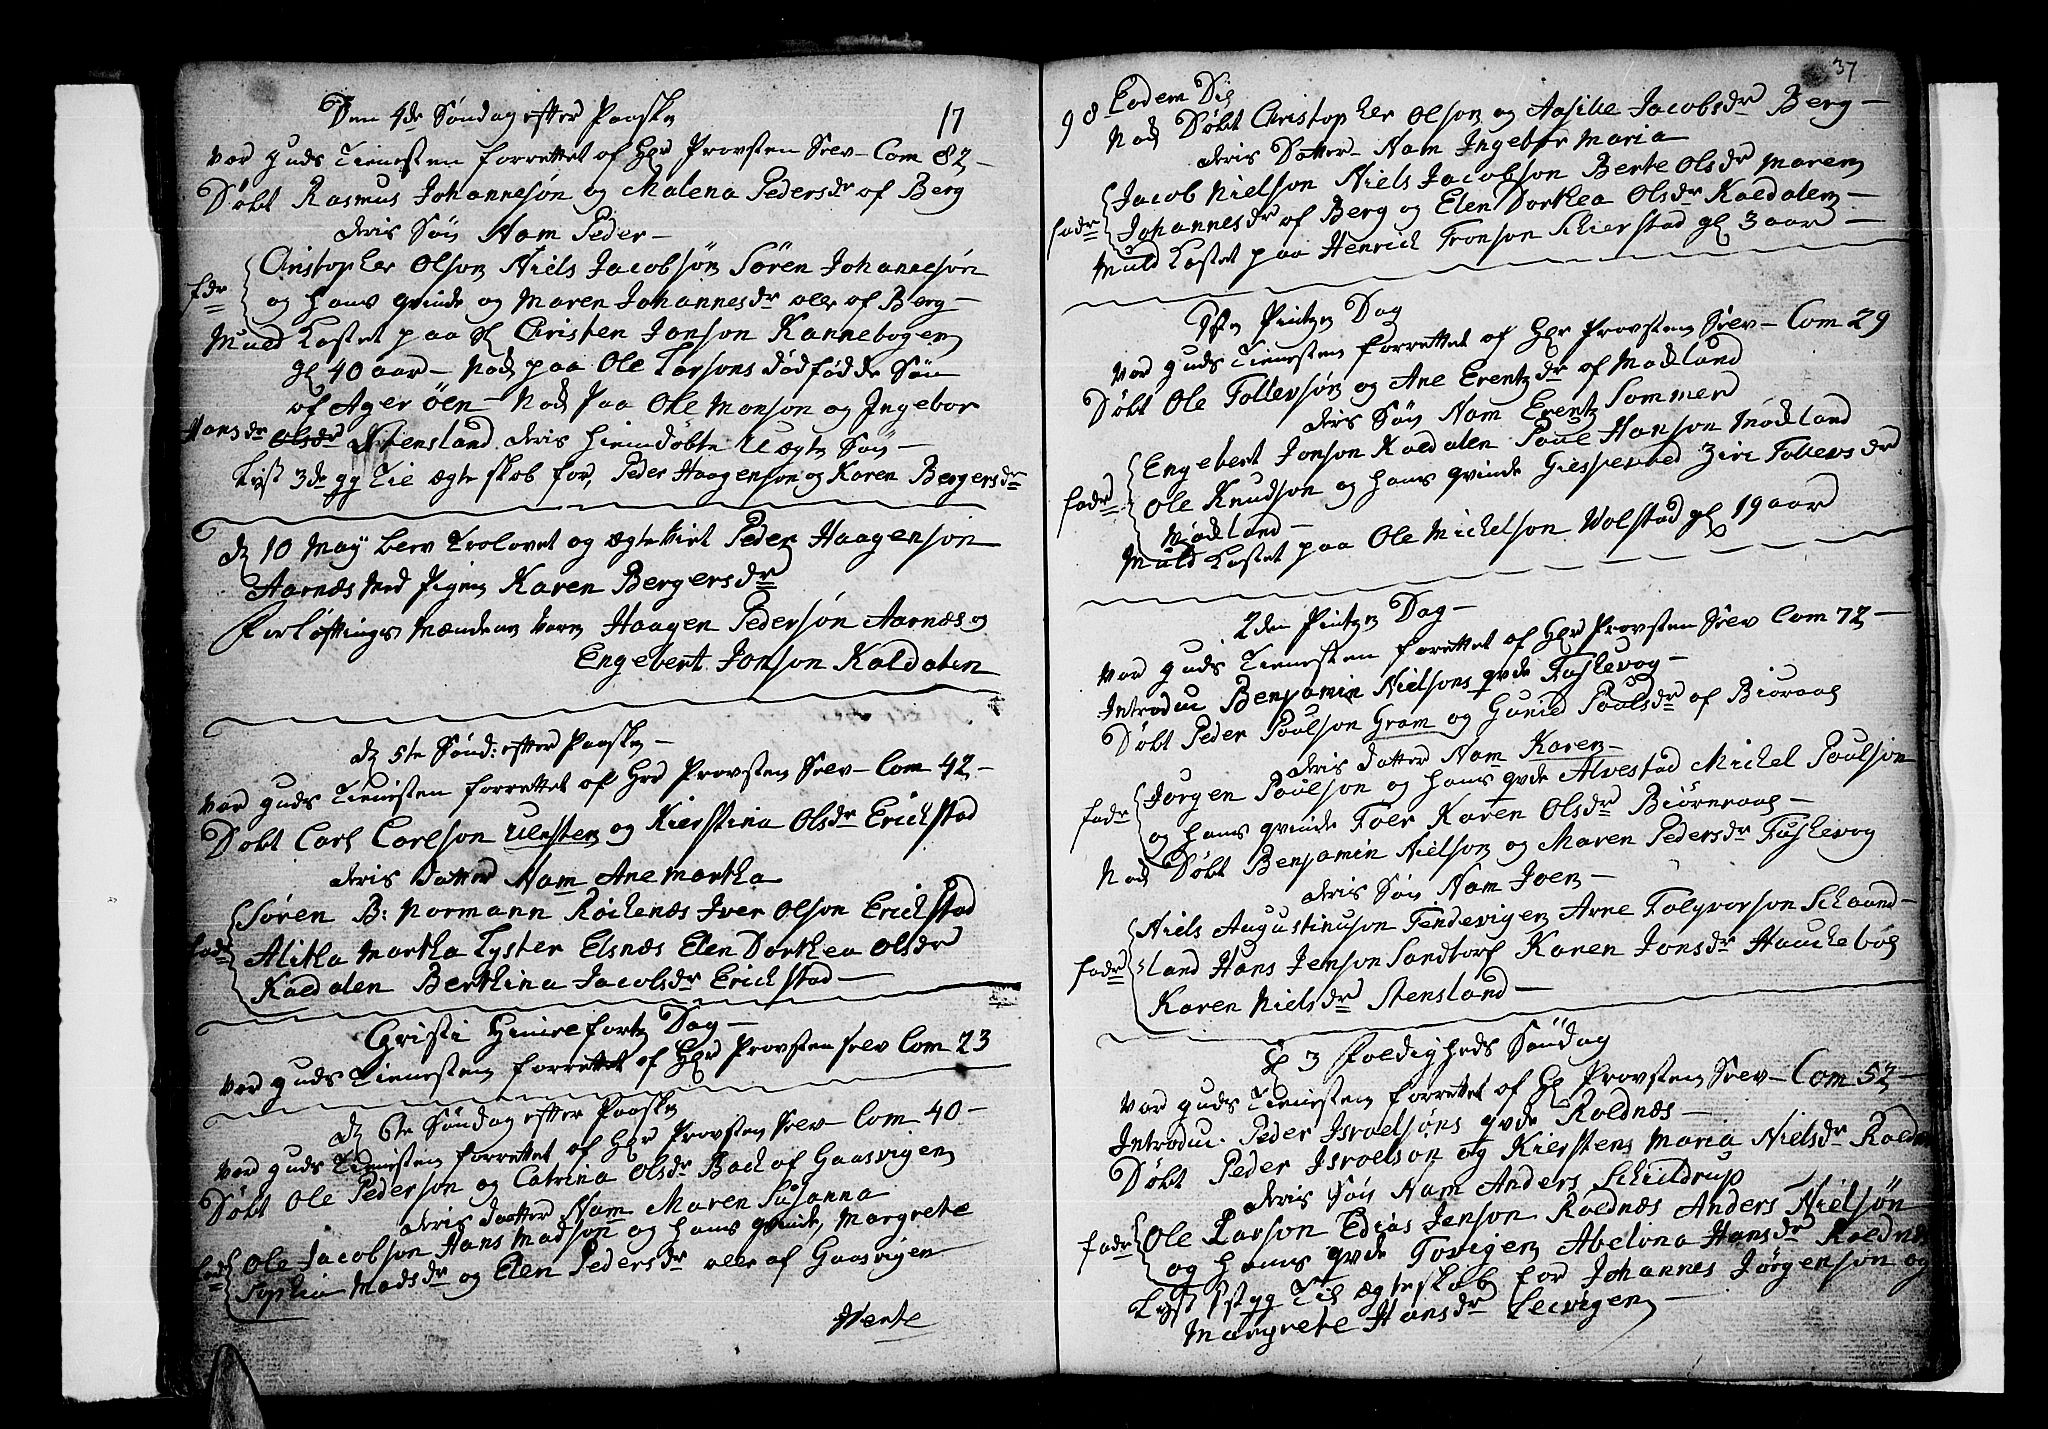 Den 4de Søndag efter Paaske
17
var guds Tienesten forrettet af Hr Provsten Selv – Com 82 –
Døbt Rasmus Johannesøn og Malena Pedersdr af Berg
deris Søn Nam Peder –
Christopher Olson Niels Jacobsøn Søren Johannesøn
fadr og hans qvinde og Maren Johannesdr alle af Berg –
Muld Kastet paa Sl Christen Jonson Kannebogen
gl 40 aar – Nok paa Ole Larsons dødfødde Søn
af Ager øen – Nok paa Ole Monson og Ingebor
Hansdr Stensland deris hiemdøbte Uægte Søn –
Lyst 3de gg Til ægteskab for, Peder Haagenson og Karen Bergersdr
d 10 May blev Trolovet og ægteviet Peder Haagenson
Aarnæs Med Pigen Karen Bergersdr
Forløftings Mændene varen Haagen Pedersøn Aarnæs og
Engebert Jonson Kaldalen
d 5te Sønd: efter Paaske –
var guds Tienesten forrettet af Hr Provsten Selv – Com 42 –
Døbt Carl Carlson Ulusten og Kierstina Olsdr Erickstad
deris datter Nam Ane Martha
Søren B: Normann Røckenæs Iver Olson Erickstad
fadr Alitha Martha Lyster Elsnæs Elen Dorthea Olsdr
Kaldalen Berthina Jacobsdr Erickstad –
Christi Himmelfarts Dag –
var guds Tienesten forrettet af Hr Provsten selv Com 23
d 6te Søndag efter Paaske
var guds Tienesten forrettet af Hr Provsten Selv – Com 40 –
Døbt Ole Pederson og Catrina Olsdr Back af Gaasvigen
deris datter Nam Maren Susanna
fadr Ole Jacobson Hans Madson og hans qvinde, Margrete
Sophia Madsdr og Elen Pedersdr alle af Gaasvigen
Vente
37
98 Eodem Die
Nok Døbt Christopher Olson og Aasille Jacobsdr Berg –
deris Datter – Nam Ingebor Maria
Jacob Nielson Niels Jacobsøn Berte Olsdr Maren
fadr Johannesdr af Berg og Elen Dorthea Olsdr Kaldalen –
Muld Kastet paa Henrick Tronson Schierstad gl 3 aar –
1ste Pintze Dag
var guds Tienesten forrettet af Hr Provsten Selv – Com 29
Døbt Ole Tollevsøn og Ane Erentzdr af Mødland
deris Søn Nam Erentz Sommer
Engebert Jonson Kaldalen Poul Hanson Mødland
fadr Ole Knudson og hans qvinde Giespevad Ziri Tollevsdr
Mødland –
Muld Kastet paa Ole Mickelson Wolstad gl 19 aar
2den Pintze Dag –
var guds Tienesten forrettet af Hr Provsten Selv Com 72 –
Introduc Benjamin Nielsons qvde Fuslevog –
Døbt Peder Poulson Gram og Gunild Poulsdr af Bioraas
deris datter Nam Karen –
Jørgen Poulson og hans qvde Alvestad Mickel Poulson
fadr og hans qvinde Foer Karen Olsdr Biørneraas –
Nok Døbt Benjamin Nielson og Maren Pedersdr Fuslevog
deris Søn Nam Joen –
Niels Augustinuson Tendevigen Arne Tolgvorson Schaand-
fadr land Hans Jenson Sandtorf Karen Jonsdr Hauckebøl
Karen Nielsdr Stensland –
3 foldigheds Søndag
var guds Tienesten forrettet af Hr Provsten Selv – Com 52 –
Introduc. Peder Isroelsøns qvde Roldnæs –
Døbt Peder Isroelson og Kierstena Maria Nielsdr Roldn
deris Søn Nam Anders Schieldrup
Ole Larson Edias Jenson Roldnæs Anders Nielsøn
fadr og hans qvde Tovigen Abelona Hansdr Roldnæs
Lyst 1st gg Til ægteskab for Johannes Jørgenson og
Margrete Hansdr Leivigen –